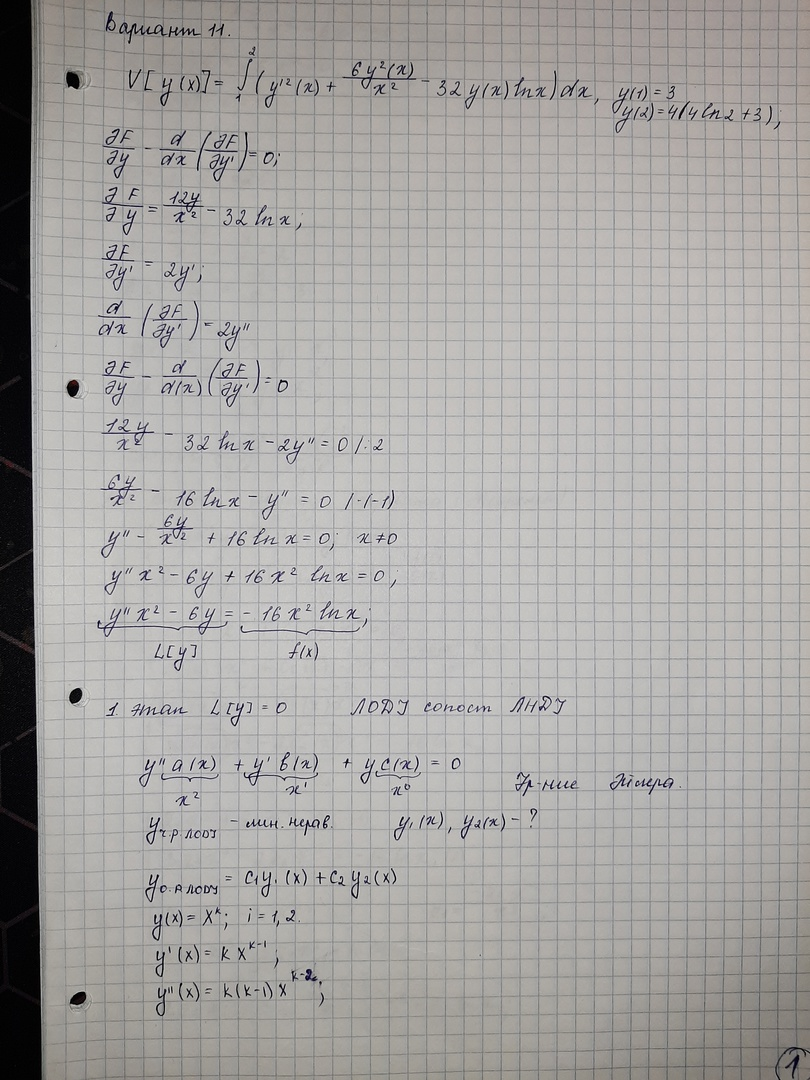 Вариант 11.
V[y(x)] = ∫₁² (y'²(x) + 6y²(x)/x² - 32y(x) ln x) dx, y(1) = 3
y(2) = 4(4 ln 2 + 3);
∂F/∂y - d/dx (∂F/∂y') = 0;
∂F/∂y = 12y/x² - 32 ln x;
∂F/∂y' = 2y';
d/dx (∂F/∂y') = 2y''
∂F/∂y - d/d(x) (∂F/∂y') = 0
12y/x² - 32 ln x - 2y'' = 0 /: 2
6y/x² - 16 ln x - y'' = 0 /·(-1)
y'' - 6y/x² + 16 ln x = 0; x ≠ 0
y''x² - 6y + 16x² ln x = 0;
y''x² - 6y = - 16x² ln x;
L[y] f(x)
1. этап L[y] = 0 ЛОДУ сопост ЛНДУ
y'' a(x) + y' b(x) + y c(x) = 0
x² x¹ x⁰ Ур-ние Эйлера.
y ч.р. ЛОДУ - лин. нерав. y₁(x), y₂(x) - ?
y о.р ЛОДУ = C₁y₁(x) + C₂y₂(x)
y(x) = x^k; i = 1, 2.
y'(x) = k x^(k-1);
y''(x) = k(k-1) x^(k-2);
1